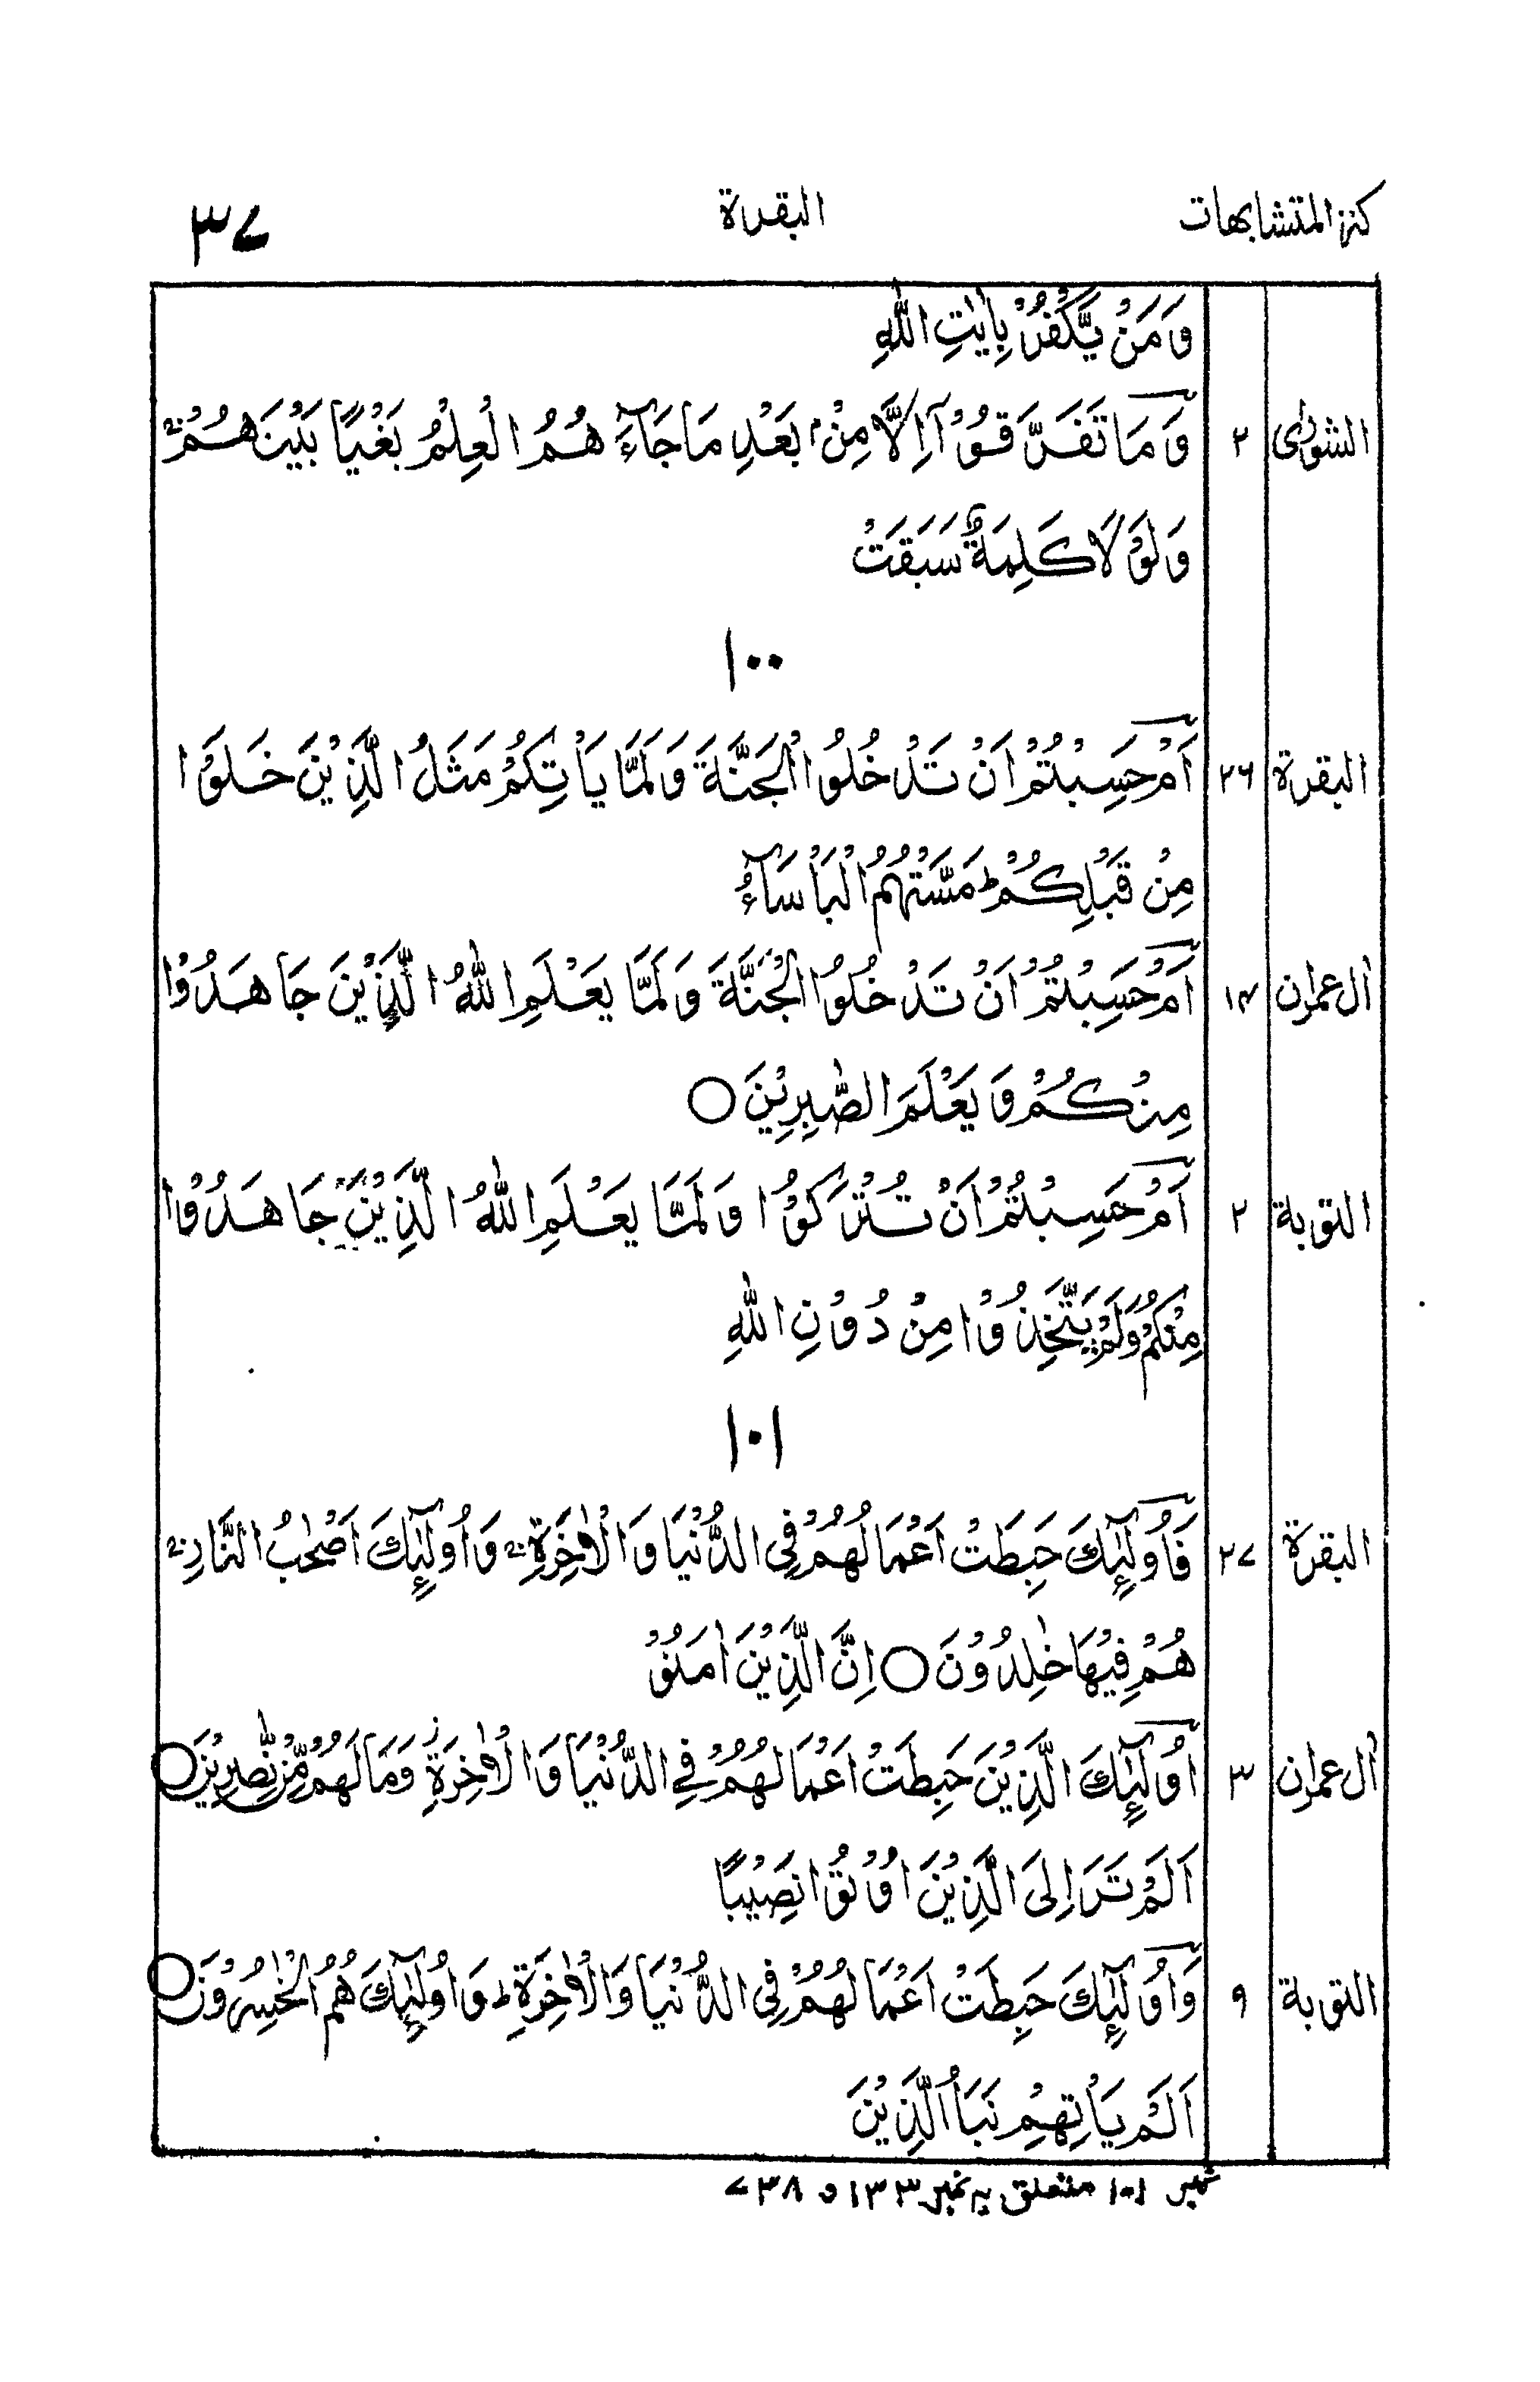 كنز المتشابهات البقرة ٣٧
وَمَنْ يَّكْفُرْ بِاٰيٰتِ اللّٰهِ
الشورٰى ٢ وَمَا تَفَرَّقُوْٓا اِلَّا مِنْۢ بَعْدِ مَا جَآءَ هُمُ الْعِلْمُ بَغْيًا بَيْنَهُمْ ؕ
وَلَوْلَا كَلِمَةٌ سَبَقَتْ
١٠٠
البقرة ٢٦ اَمْ حَسِبْتُمْ اَنْ تَدْخُلُوا الْجَنَّةَ وَلَمَّا يَاْتِكُمْ مَثَلُ الَّذِيْنَ خَلَوْا
مِنْ قَبْلِكُمْ ؕ مَسَّتْهُمُ الْبَاْسَآءُ
اٰل عمران ١٤ اَمْ حَسِبْتُمْ اَنْ تَدْخُلُوا الْجَنَّةَ وَلَمَّا يَعْلَمِ اللّٰهُ الَّذِيْنَ جَاهَدُوْا
مِنْكُمْ وَيَعْلَمَ الصّٰبِرِيْنَ ○
التوبة ٢ اَمْ حَسِبْتُمْ اَنْ تُتْرَكُوْا وَلَمَّا يَعْلَمِ اللّٰهُ الَّذِيْنَ جَاهَدُوْا
مِنْكُمْ وَلَمْ يَتَّخِذُوْا مِنْ دُوْنِ اللّٰهِ
١٠١
البقرة ٢٧ فَاُولٰٓئِكَ حَبِطَتْ اَعْمَالُهُمْ فِى الدُّنْيَا وَالْاٰخِرَةِ ۚ وَاُولٰٓئِكَ اَصْحٰبُ النَّارِ ۚ
هُمْ فِيْهَا خٰلِدُوْنَ ○ اِنَّ الَّذِيْنَ اٰمَنُوْ
اٰل عمران ٣ اُولٰٓئِكَ الَّذِيْنَ حَبِطَتْ اَعْمَالُهُمْ فِي الدُّنْيَا وَالْاٰخِرَةِ ز وَمَا لَهُمْ مِّنْ نّٰصِرِيْنَ ○
اَلَمْ تَرَ اِلَى الَّذِيْنَ اُوْتُوْا نَصِيْبًا
التوبة ٩ وَاُولٰٓئِكَ حَبِطَتْ اَعْمَالُهُمْ فِى الدُّنْيَا وَالْاٰخِرَةِ ؕ وَاُولٰٓئِكَ هُمُ الْخٰسِرُوْنَ ○
اَلَمْ يَاْتِهِمْ نَبَاُ الَّذِيْنَ
نمبر ١٠١ متعلق بہ نمبر ١٣٣ و ٧٣٨